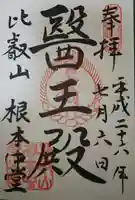 奉拝
平成二十八年
七月六日
醫王殿
比叡山
根本中堂